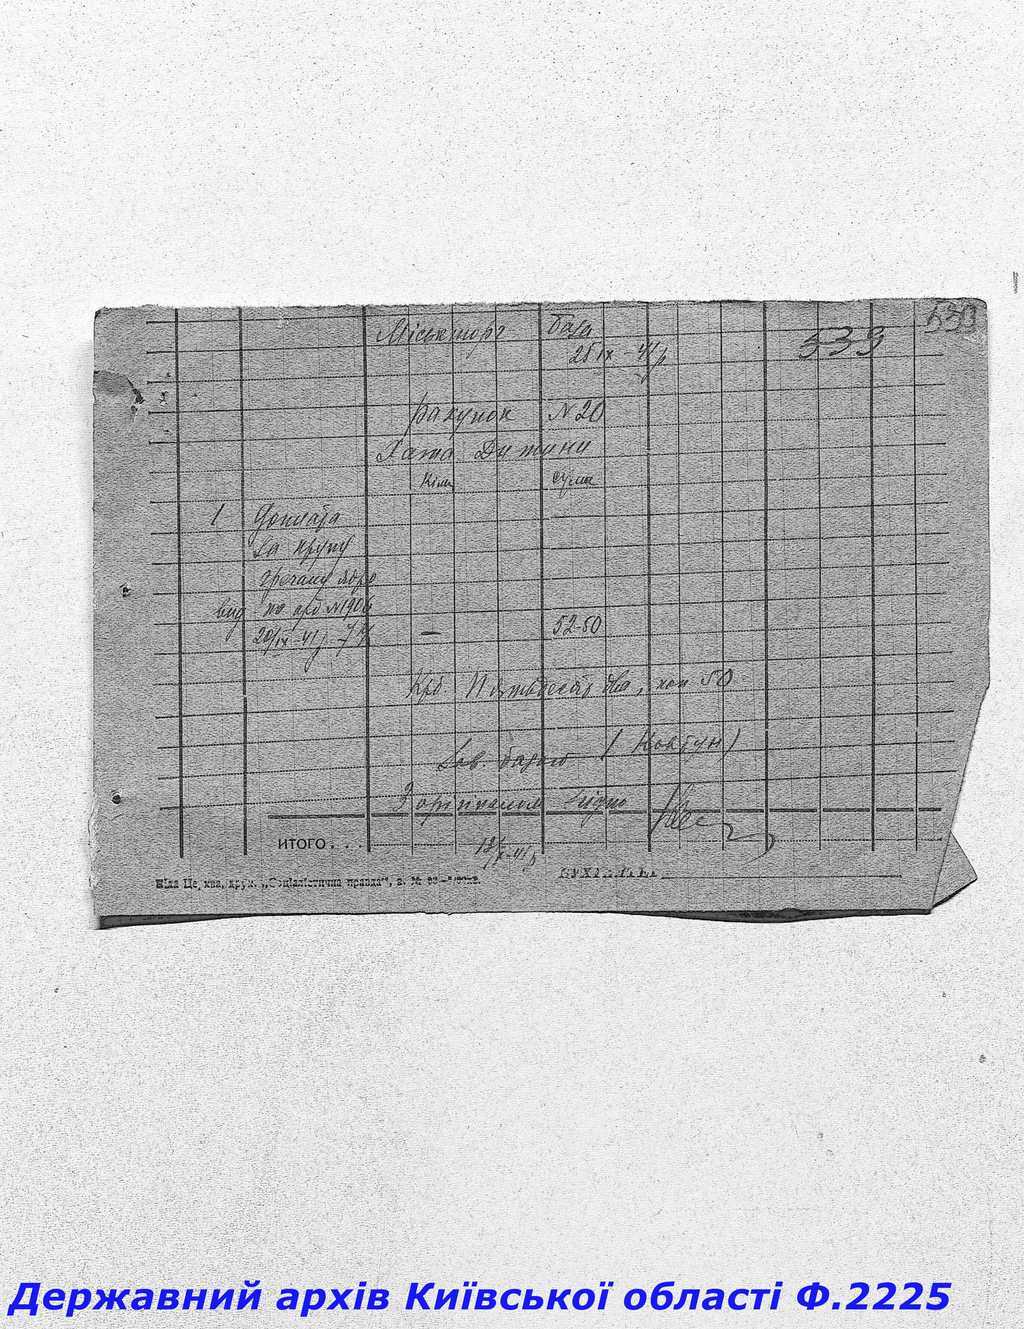 Міськторг база 533
25/IX-41р 539
Рахунок № 20
Хата Дитини
Кільк сума
1 Доплата
за крупу
гречану ядро
від по арб № 1906
20/IX 41р - 52-50
Крб. Пятьдесят два, коп 50
Зав. базою (Ковтун)
З орігіналом згідно
ИТОГО . . .
друк. „Соціалістична правда“, з. №
Державний архів Київської області Ф.2225